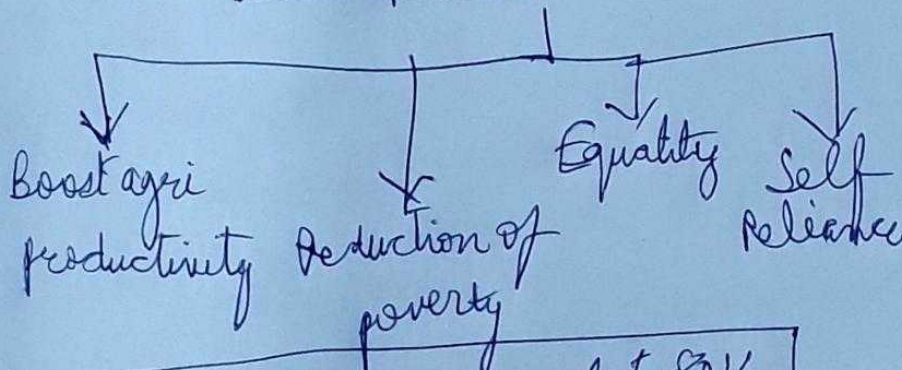 Boost agri
productivity
Reduction of
poverty
Equality
Self
Reliance